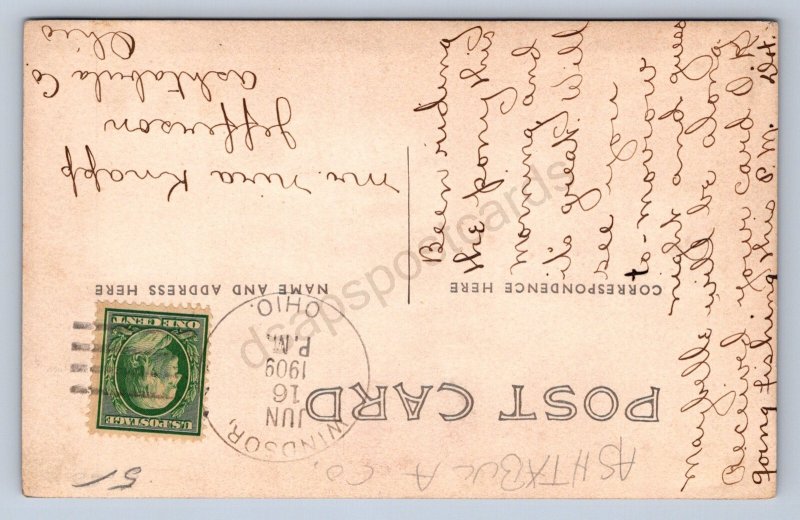 POST CARD
CORRESPONDENCE HERE
NAME AND ADDRESS HERE
WINDSOR,
JUN
16
1909
P.M.
OHIO.
U.S. POSTAGE
ONE CENT
Been riding
the pony this
morning and
its great. Will
see you
to-morow
night and guess
Maybelle will be along
Received your card O.K.
going fishing this P.M.
Mr. Nira Knapp
Jefferson
Ashtabula Co
Ohio
ASHTABULA CO,
5/
dsapspostcards